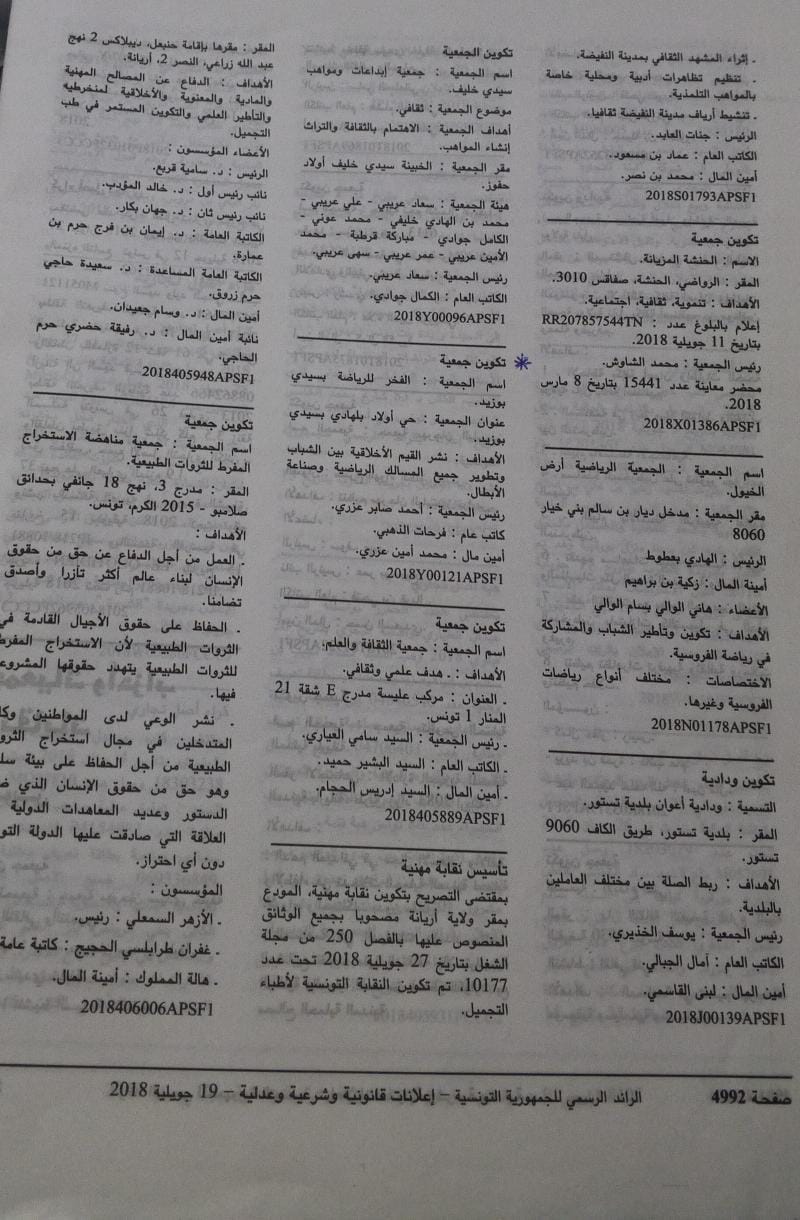 ـ إثراء المشهد الثقافي بمدينة النفيضة.
ـ تنظيم تظاهرات أدبية ومحلية خاصة
بالمواهب التلمذية.
ـ تنشيط أرياف مدينة النفيضة ثقافيا.
الرئيس : جنات العابد.
الكاتب العام : عماد بن مسعود.
أمين المال : محمد بن نصر.
2018S01793APSF1
تكوين جمعية
الاسم : الحنشة المزيانة.
المقر : الرواضي، الحنشة، صفاقس 3010.
الأهداف : تنموية، ثقافية، اجتماعية.
إعلام بالبلوغ عدد : RR207857544TN
بتاريخ 11 جويلية 2018.
رئيس الجمعية : محمد الشاوش.
محضر معاينة عدد 15441 بتاريخ 8 مارس
2018.
2018X01386APSF1
اسم الجمعية : الجمعية الرياضية أرض
الخيول.
مقر الجمعية : مدخل ديار بن سالم بني خيار
8060
الرئيس : الهادي بعطوط
أمينة المال : زكية بن براهيم
الأعضاء : هاني الوالي بسام الوالي
الأهداف : تكوين وتأطير الشباب والمشاركة
في رياضة الفروسية.
الاختصاصات : مختلف أنواع رياضات
الفروسية وغيرها.
2018N01178APSF1
تكوين ودادية
التسمية : ودادية أعوان بلدية تستور.
المقر : بلدية تستور، طريق الكاف 9060
تستور.
الأهداف : ربط الصلة بين مختلف العاملين
بالبلدية.
رئيس الجمعية : يوسف الخذيري.
الكاتب العام : آمال الجبالي.
أمين المال : لبنى القاسمي.
2018J00139APSF1
تكوين الجمعية
اسم الجمعية : جمعية إبداعات ومواهب
سيدي خليف.
موضوع الجمعية : ثقافي.
أهداف الجمعية : الاهتمام بالثقافة والتراث
إنشاء المواهب.
مقر الجمعية : الخبينة سيدي خليف أولاد
حفوز.
هيئة الجمعية : سعاد عريبي - علي عريبي -
محمد بن الهادي خليفي - محمد عوني -
الكامل جوادي - مباركة قرطبة - محمد
الأمين عريبي - عمر عريبي - سهى عريبي.
رئيس الجمعية : سعاد عريبي.
الكاتب العام : الكمال جوادي.
2018Y00096APSF1
تكوين جمعية
اسم الجمعية : الفخر للرياضة بسيدي
بوزيد.
عنوان الجمعية : حي أولاد بلهادي بسيدي
بوزيد.
الأهداف : نشر القيم الأخلاقية بين الشباب
وتطوير جميع المسالك الرياضية وصناعة
الأبطال.
رئيس الجمعية : أحمد صابر عزري.
كاتب عام : فرحات الذهبي.
أمين مال : محمد أمين عزري.
2018Y00121APSF1
تكوين جمعية
اسم الجمعية : جمعية الثقافة والعلم.
الأهداف : ـ هدف علمي وثقافي.
ـ العنوان : مركب عليسة مدرج E شقة 21
المنار 1 تونس.
ـ رئيس الجمعية : السيد سامي العياري.
ـ الكاتب العام : السيد البشير حميد.
ـ أمين المال : السيد إدريس الحجام.
2018405889APSF1
تأسيس نقابة مهنية
بمقتضى التصريح بتكوين نقابة مهنية، المودع
بمقر ولاية أريانة مصحوبا بجميع الوثائق
المنصوص عليها بالفصل 250 من مجلة
الشغل بتاريخ 27 جويلية 2018 تحت عدد
10177، تم تكوين النقابة التونسية لأطباء
التجميل.
المقر : مقرها بإقامة حنبعل، ديبلاكس 2 نهج
عبد الله زراعي، النصر 2، أريانة.
الأهداف : الدفاع عن المصالح المهنية
والمادية والمعنوية والأخلاقية لمنخرطيه
والتأطير العلمي والتكوين المستمر في طب
التجميل.
الأعضاء المؤسسون :
الرئيس : د. سامية قريع.
نائب رئيس أول : د. خالد المؤدب.
نائب رئيس ثان : د. جهان بكار.
الكاتبة العامة : د. إيمان بن فرج حرم بن
عمارة.
الكاتبة العامة المساعدة : د. سعيدة حاجي
حرم زروق.
أمين المال : د. وسام جعيدان.
نائبة أمين المال : د. رفيقة حضري حرم
الحاجي.
2018405948APSF1
تكوين جمعية
اسم الجمعية : جمعية مناهضة الاستخراج
المفرط للثروات الطبيعية.
المقر : مدرج 3، نهج 18 جانفي بحدائق
صلامبو - 2015 الكرم، تونس.
الأهداف :
ـ العمل من أجل الدفاع عن حق من حقوق
الإنسان لبناء عالم أكثر تآزرا وأصدق
تضامنا.
ـ الحفاظ على حقوق الأجيال القادمة في
الثروات الطبيعية لأن الاستخراج المفرط
للثروات الطبيعية يتهدد حقوقها المشروعة
فيها.
ـ نشر الوعي لدى المواطنين
المتدخلين في مجال استخراج
الطبيعية من أجل الحفاظ على بيئة
وهو حق من حقوق الإنسان الذي
الدستور وعديد المعاهدات الدولية
العلاقة التي صادقت عليها الدولة
دون أي احتراز.
المؤسسون :
ـ الأزهر السمعلي : رئيس.
ـ غفران طرابلسي الحجيج : كاتبة عامة
ـ هالة المملوك : أمينة المال.
2018406006APSF1
صفحة 4992 الرائد الرسمي للجمهورية التونسية – إعلانات قانونية وشرعية وعدلية – 19 جويلية 2018